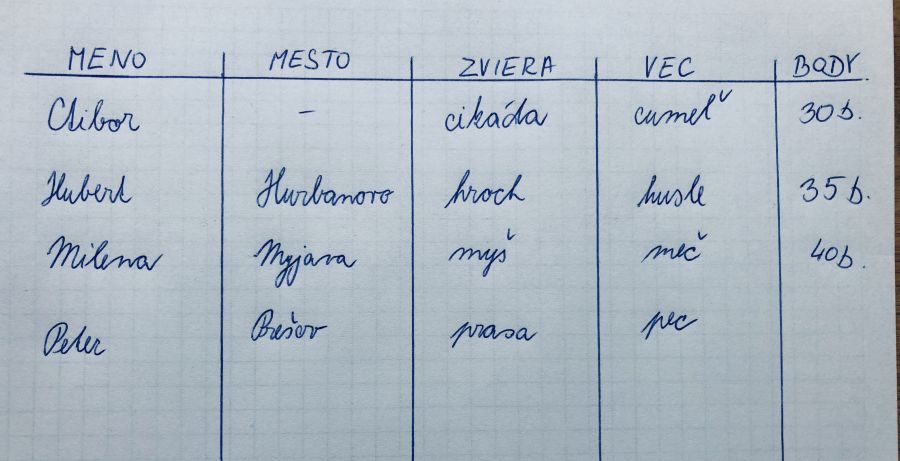 MENO MESTO ZVIERA VEC BODY
Ctibor - cikáda cumeľ 30b.
Hubert Hurbanovo hroch husle 35b.
Milena Myjava myš meč 40b.
Peter Prešov prasa pec